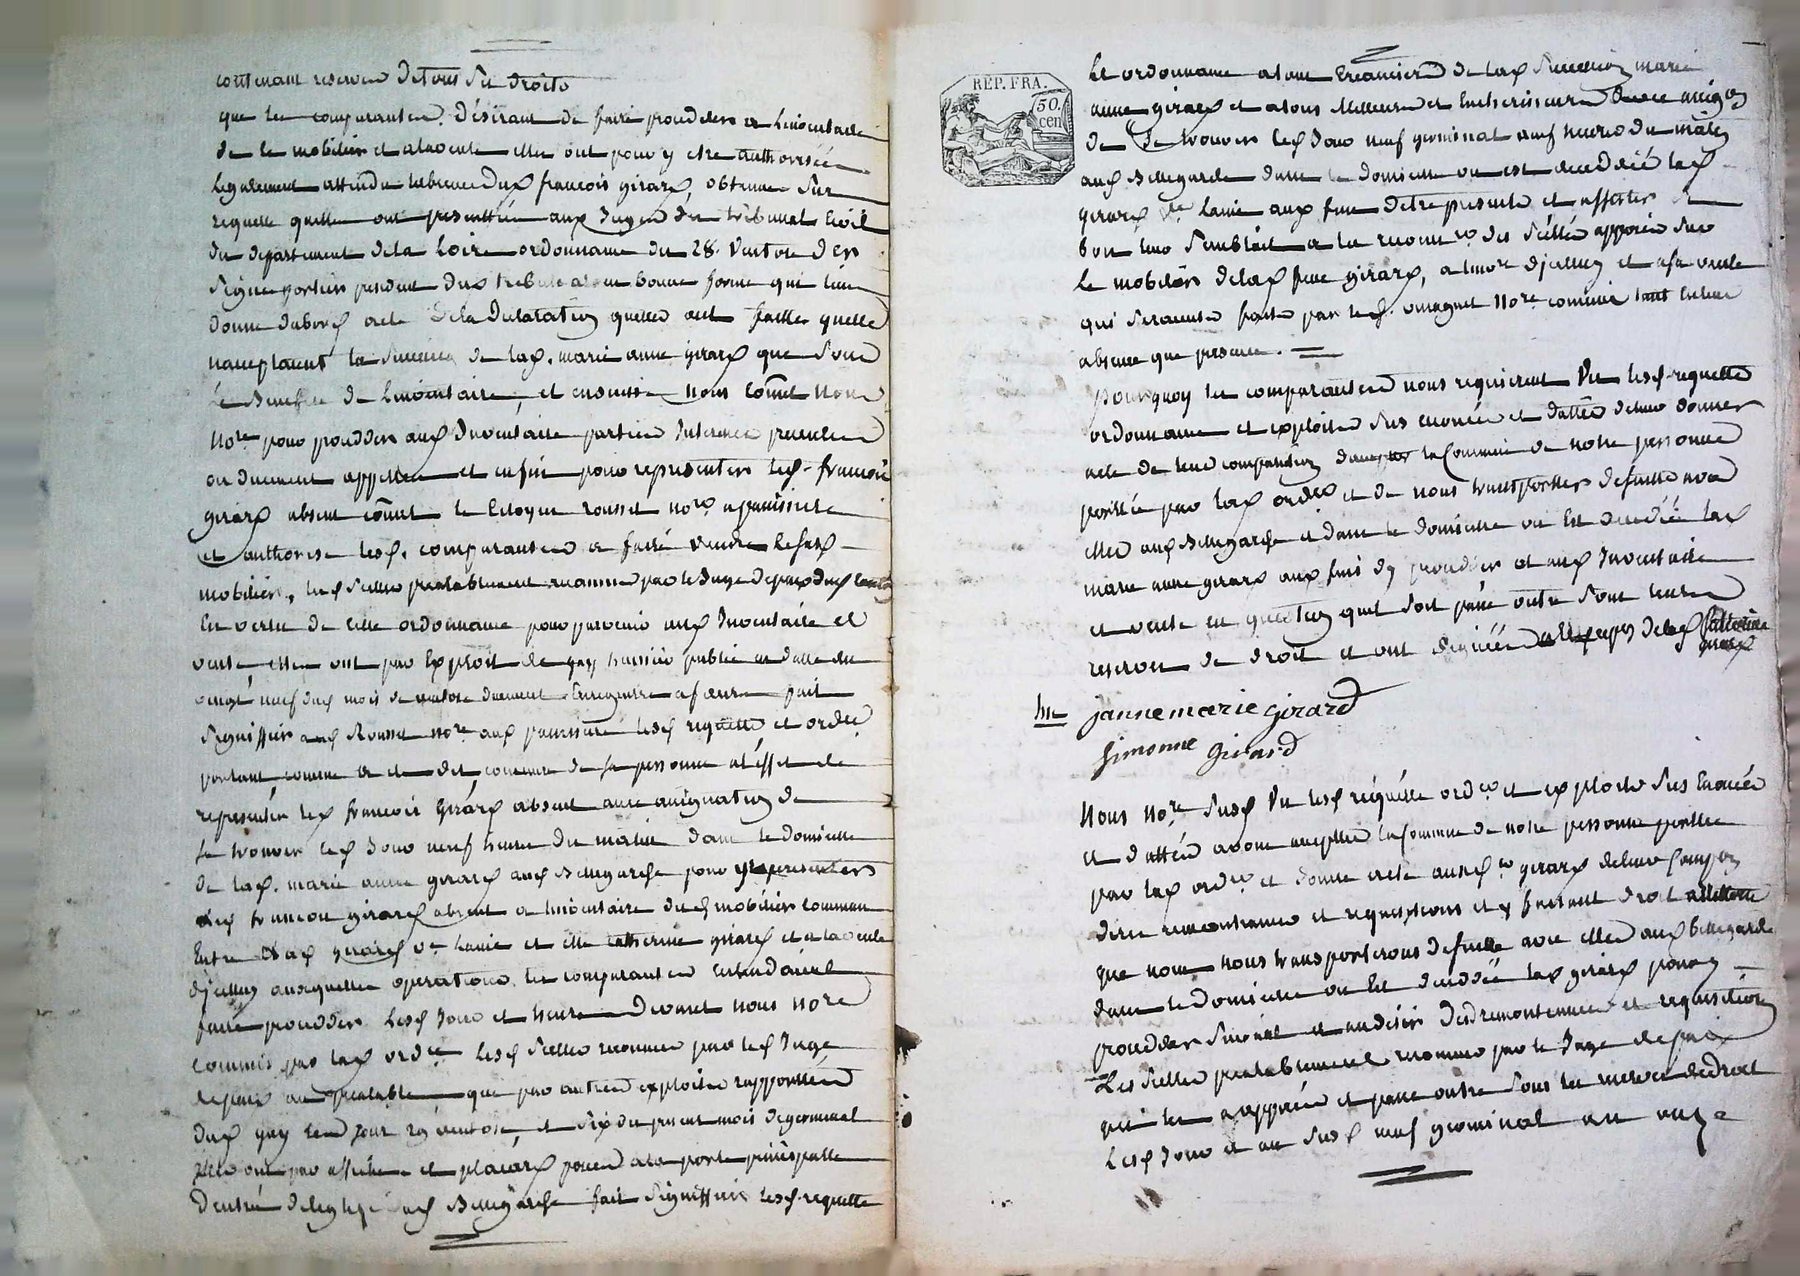 contenant reserve de tous ses droits
que les comparantes désirant de faire proceder a linventaire
de le mobilier et a la vente elles ont pour y etre authorisées
legalement attendu labsence dud francois girard, obtenu sur
requette quelles ont presentée aux juges du tribunal civil
du departement de la Loire ordonnance du 28 ventose der
signée portier president dud tribunal en bonne forme qui leur
donne dabord acte de la declaration quelles ont faitte quelles
nacceptaient la succession de lad. marie anne girard que sous
le benefice de linventaire, et ensuitte nous commet nous
nore pour proceder aud inventaire parties interessées presentes
ou duement appellées et enfin pour representer led. francois
girard absent commet le Citoyen rousset nore a
et authorise lesd. comparantes a faire vendre le susd
mobilier, les scellés prealablement reconnus par le juge de paix dud canton
En vertu de cette ordonnance pour parvenir aud inventaire et
vente elles ont par exploit de gay huissier public en datte du
vingt neuf dud mois de ventose duement enregistré a feurs fait
signiffier aud Rousset nore lesd requette et ordce
portant comme a été dit commise de sa personne a leffet de
representer led francois girard absent avec assignation de
se trouver led jour neuf heures du matin dans le domicille
de lad. marie anne girard aud Bellegarde pour y representer
led francois girard absent a linventaire dud mobilier commun
Entre lad girard ve lanie et elle catherine girard et a la vente
dicelluy auxquelles operations les comparantes entendaient
faire proceder lesd jour et heure devant nous nore
commis par lad ordce les scellés reconnus par led juge
de paix au prealable que par autres exploits rapportés
dud gay led jour 29 ventose, et six du present mois de germinal
elles ont par affiche et placard posés a la porte principalle
dentrée de leglise dud Bellegarde fait signiffier lesd requette
REP. FRA.
50.
cen
Et ordonnance a tous creanciers de lad succession marie
anne girard et a tous metteurs et encherisseurs avec assign
de se trouver led jour neuf germinal neuf heures du matin
aud Bellegarde dans le domicille ou est decedée lad
girard ve lanie aux fins detre presents et assister si
bon leur semblait a la reconce des scellés apposés sur
le mobilier de lad feue girard, a linvre dicelluy et a sa vente
qui seraient faits par led. magnet nore commis tant en leur
absence que presence.
pourquoy les comparantes nous requierent vu lesd. requette
ordonnance et exploits sus enoncés et dattés de leur donner
acte de leur comparution daccepter la commise de notre personne
portée par lad ordce et de nous transporter de suitte avec
elles aud Bellegarde et dans le domicille ou est decedée lad
marie anne girard aux fins dy proceder et aud inventaire
et vente en question quil soit passé outre sous leurs
reserves de droit et ont signées de lad Catherine
girard
jannemarie girard
simonne girard
Nous nore susd vu lesd requette ordce et exploits sus enoncés
et dattés avons accepté la commise de notre personne portée
par lad ordce et donné acte auxd girard de leurs compon
dires remontrances et requisitions et y faisant droit
que nous nous transporterons de suitte avec elles aud bellegarde
dans le domicille ou est decedée lad girard pour y
proceder suivant et au desir des remontrances et requisitions
Les scellés prealablement reconnus par le juge de paix
qui les a apposés et passé outre sous les reserves de droit
Lesd jour et an susd neuf germinal an onze